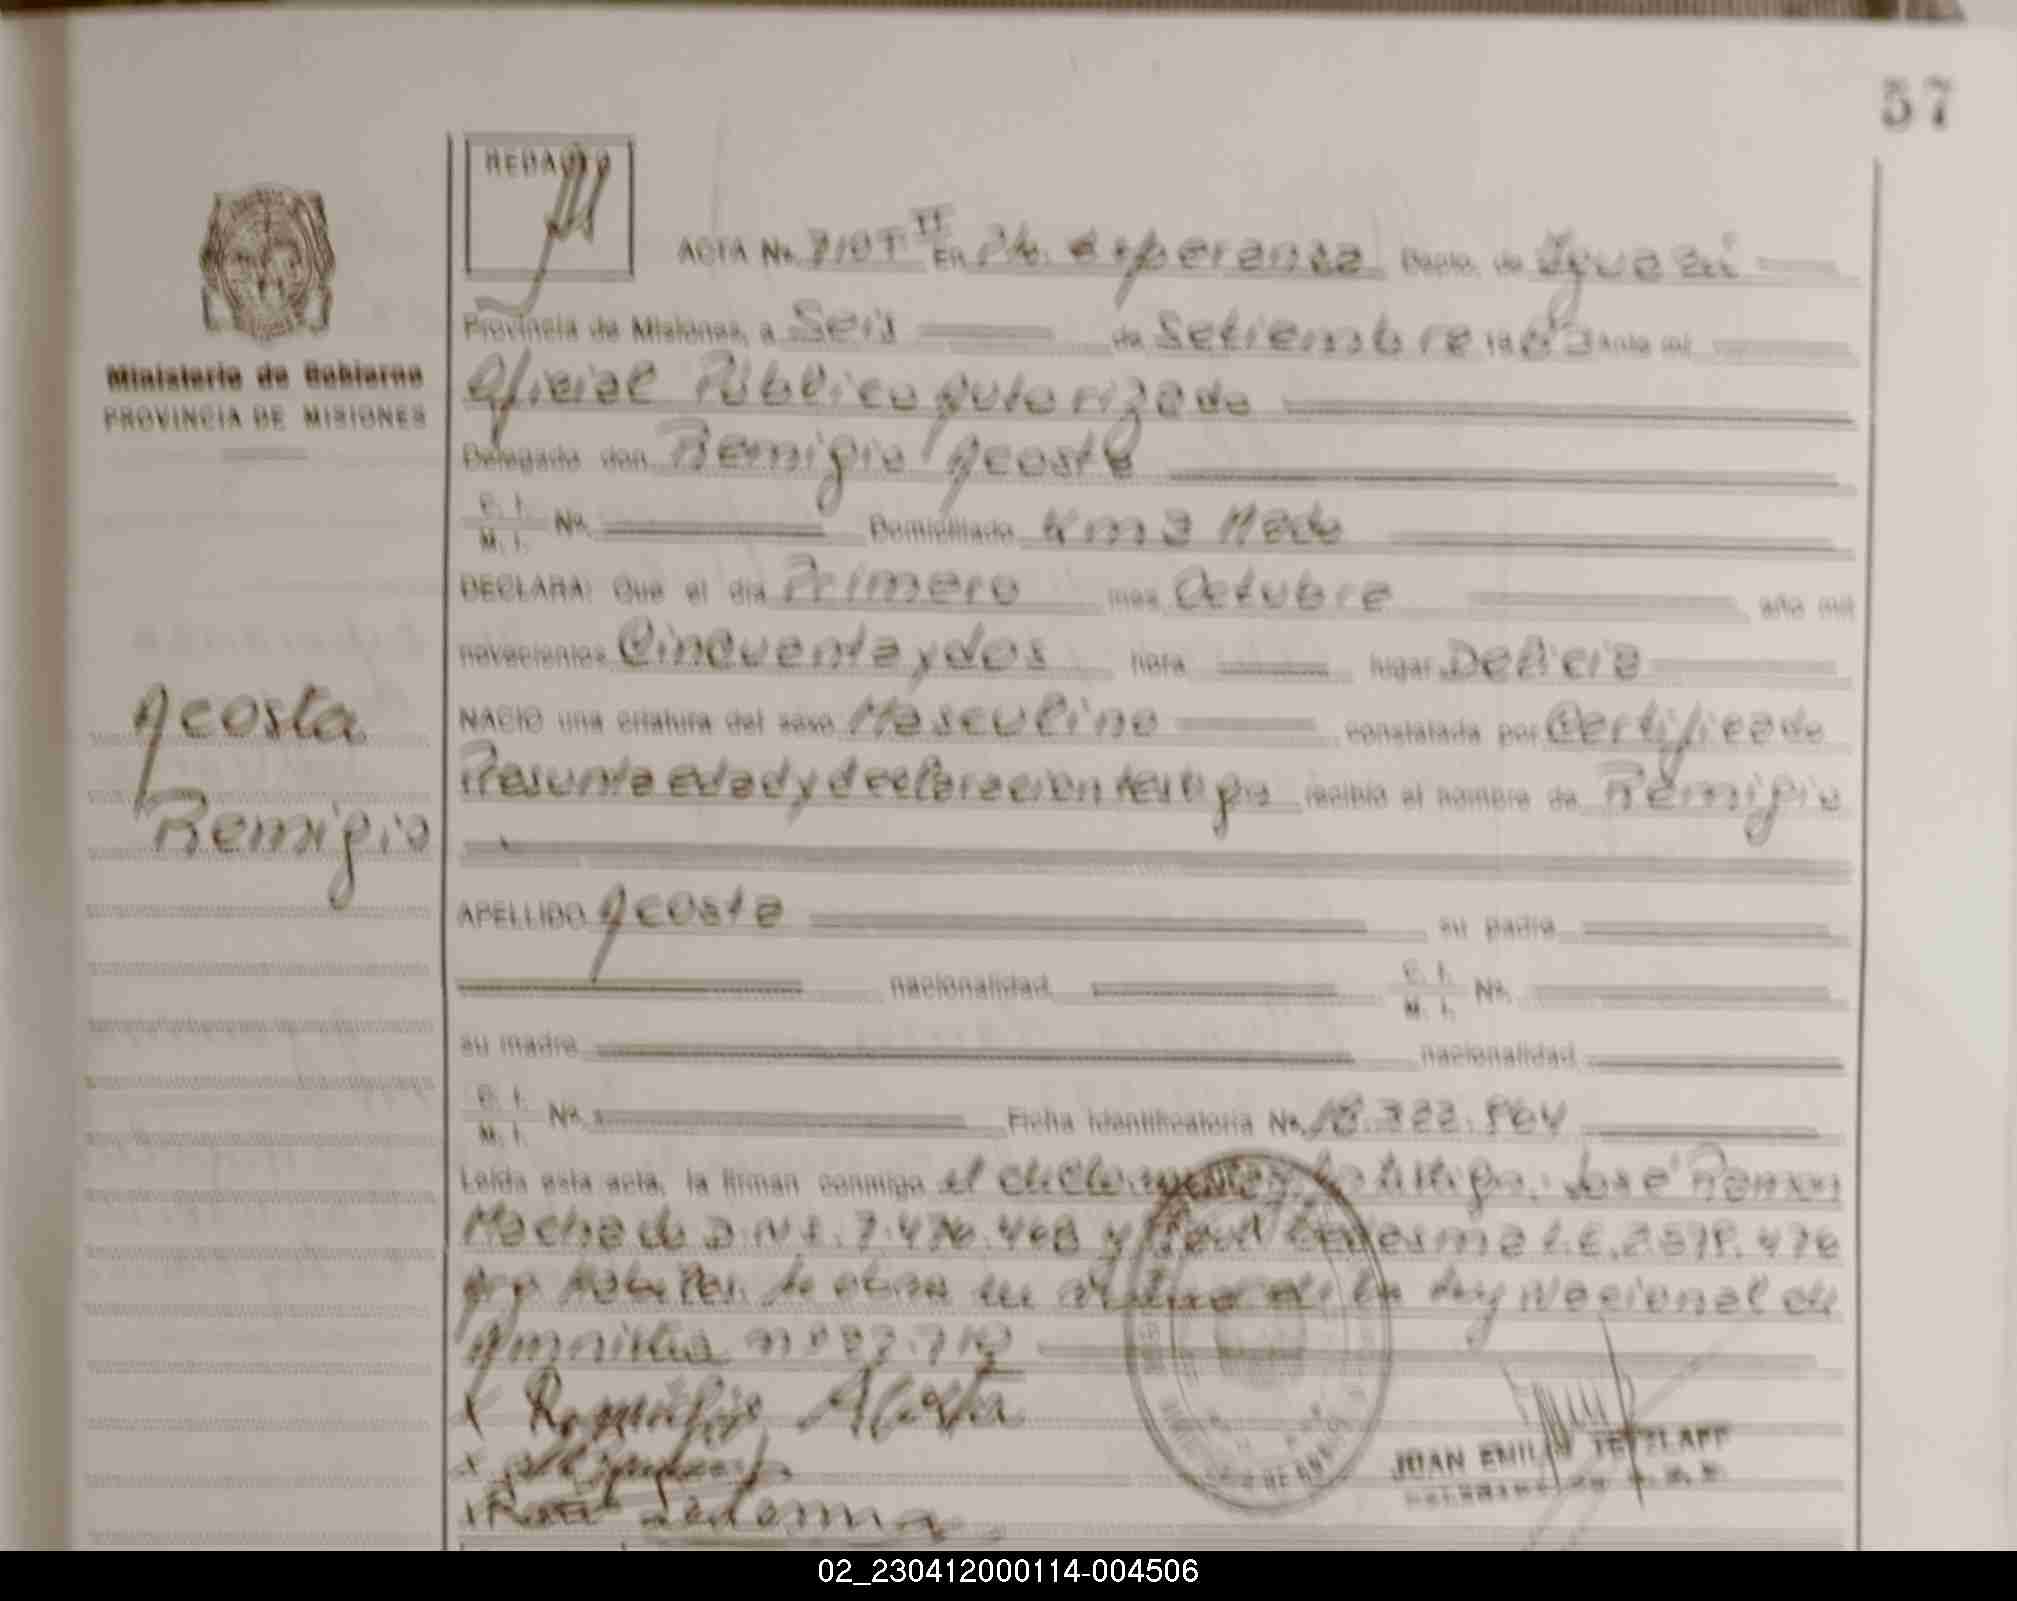 57
REDACTO
ACTA No. EN Pto. esperanza Depto. de Iguazú
Provincia de Misiones, a Seis de Setiembre 19 83 Ante mi
Oficial Público Autorizado
Delegado don Remigio Acosta
C. I.
M. I. No. Domiciliado Km 3 Mado
DECLARA: Que el día Primero mes Octubre año mil
novecientos Cincuenta y dos hora lugar Delicia
NACIO una criatura del sexo Masculino constatada por Certificado
Presunta edad y declaracion testigo recibió el nombre de Remigio
APELLIDO Acosta su padre
nacionalidad C. I.
M. I. No.
su madre nacionalidad
C. I.
M. I. No. Ficha Identificatoria No. 18.322.
Leída esta acta, la firman conmigo el testigo: José Ramon
Machado D.N.I. 7.476.468 y Raul Ledesma L.E. 476
de la Ley Nacional de
Amnistia
x Remigio Acosta
x
x Raul Ledesma
JUAN EMILIO TETZLAFF
Ministerio de Gobierno
PROVINCIA DE MISIONES
Acosta
Remigio
02_230412000114-004506